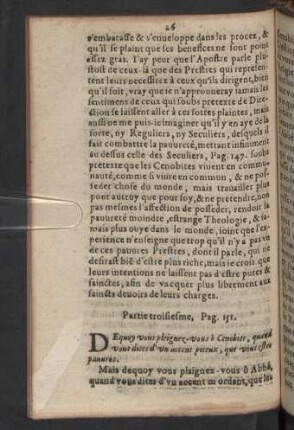 26
s'embarasse & s'enueloppe dans les procez, &
qu'il se plaint que ses benefices ne sont point
assez gras. I'ay peur que l'Apostre parle plu-
stost de ceux-là que des Prestres qui represen-
tent leurs necessitez à ceux qu'ils dirigent, bien
qu'il soit, vray que ie n'approuueray iamais les
sentimens de ceux qui soubs pretexte de Dire-
ction se laissent aller à ces sottes plaintes, mais
aussi ne me puis-ie imaginer qu'il y en aye de la
sorte, ny Reguliers, ny Seculiers, desquels il
fait combattre la pauureté, mettant infiniment
au dessus celle des Seculiers, Pag. 147. soubs
pretexte que les Cenobites viuent en commu-
nauté, comme si viure en commun, & ne pos-
seder chose du monde, mais trauailler plus
pour autruy que pour soy, & ne pretendre,
pas mesmes l'affection de posseder, rendoit la
pauureté moindre, estrange Theologie, & ia-
mais plus ouye dans le monde, ioint que l'ex-
perience n'enseigne que trop qu'il n'y a pas vn
de ces pauures Prestres, dont il parle, qui ne
desirast biẽ d'estre plus riche, mais ie crois que
leurs intentions ne laissent pas d'estre pures &
sainctes, afin de vacquer plus librement aux
saincts deuoirs de leurs charges.
Partie troisiesme, Pag. 151.
DEquoy vous plaignez-vous ô Cenobite, quand
vous dites d'vn accent piteux, que vous estes
pauures.
Mais dequoy vous plaignez-vous ô Abbé,
quand vous dites d'vn accent mordant, que les